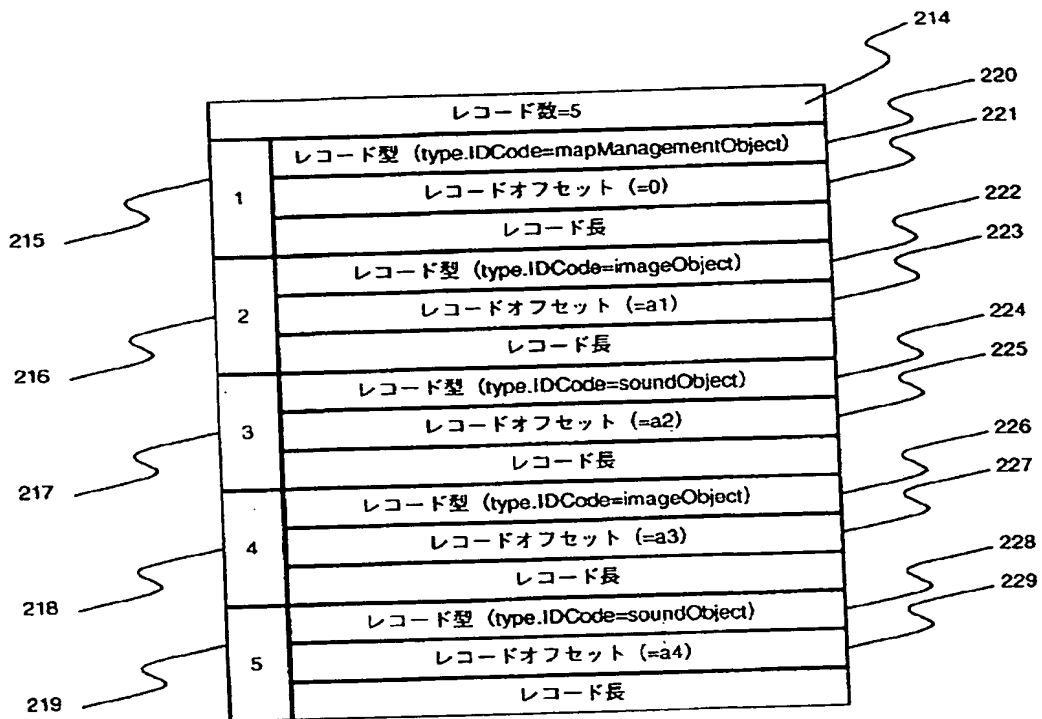 214
レコード数=5
220
221
1
レコード型 (type.IDCode=mapManagementObject)
レコードオフセット (=0)
レコード長
215
222
223
2
レコード型 (type.IDCode=imageObject)
レコードオフセット (=a1)
レコード長
216
224
225
3
レコード型 (type.IDCode=soundObject)
レコードオフセット (=a2)
レコード長
217
226
227
4
レコード型 (type.IDCode=imageObject)
レコードオフセット (=a3)
レコード長
218
228
229
5
レコード型 (type.IDCode=soundObject)
レコードオフセット (=a4)
レコード長
219